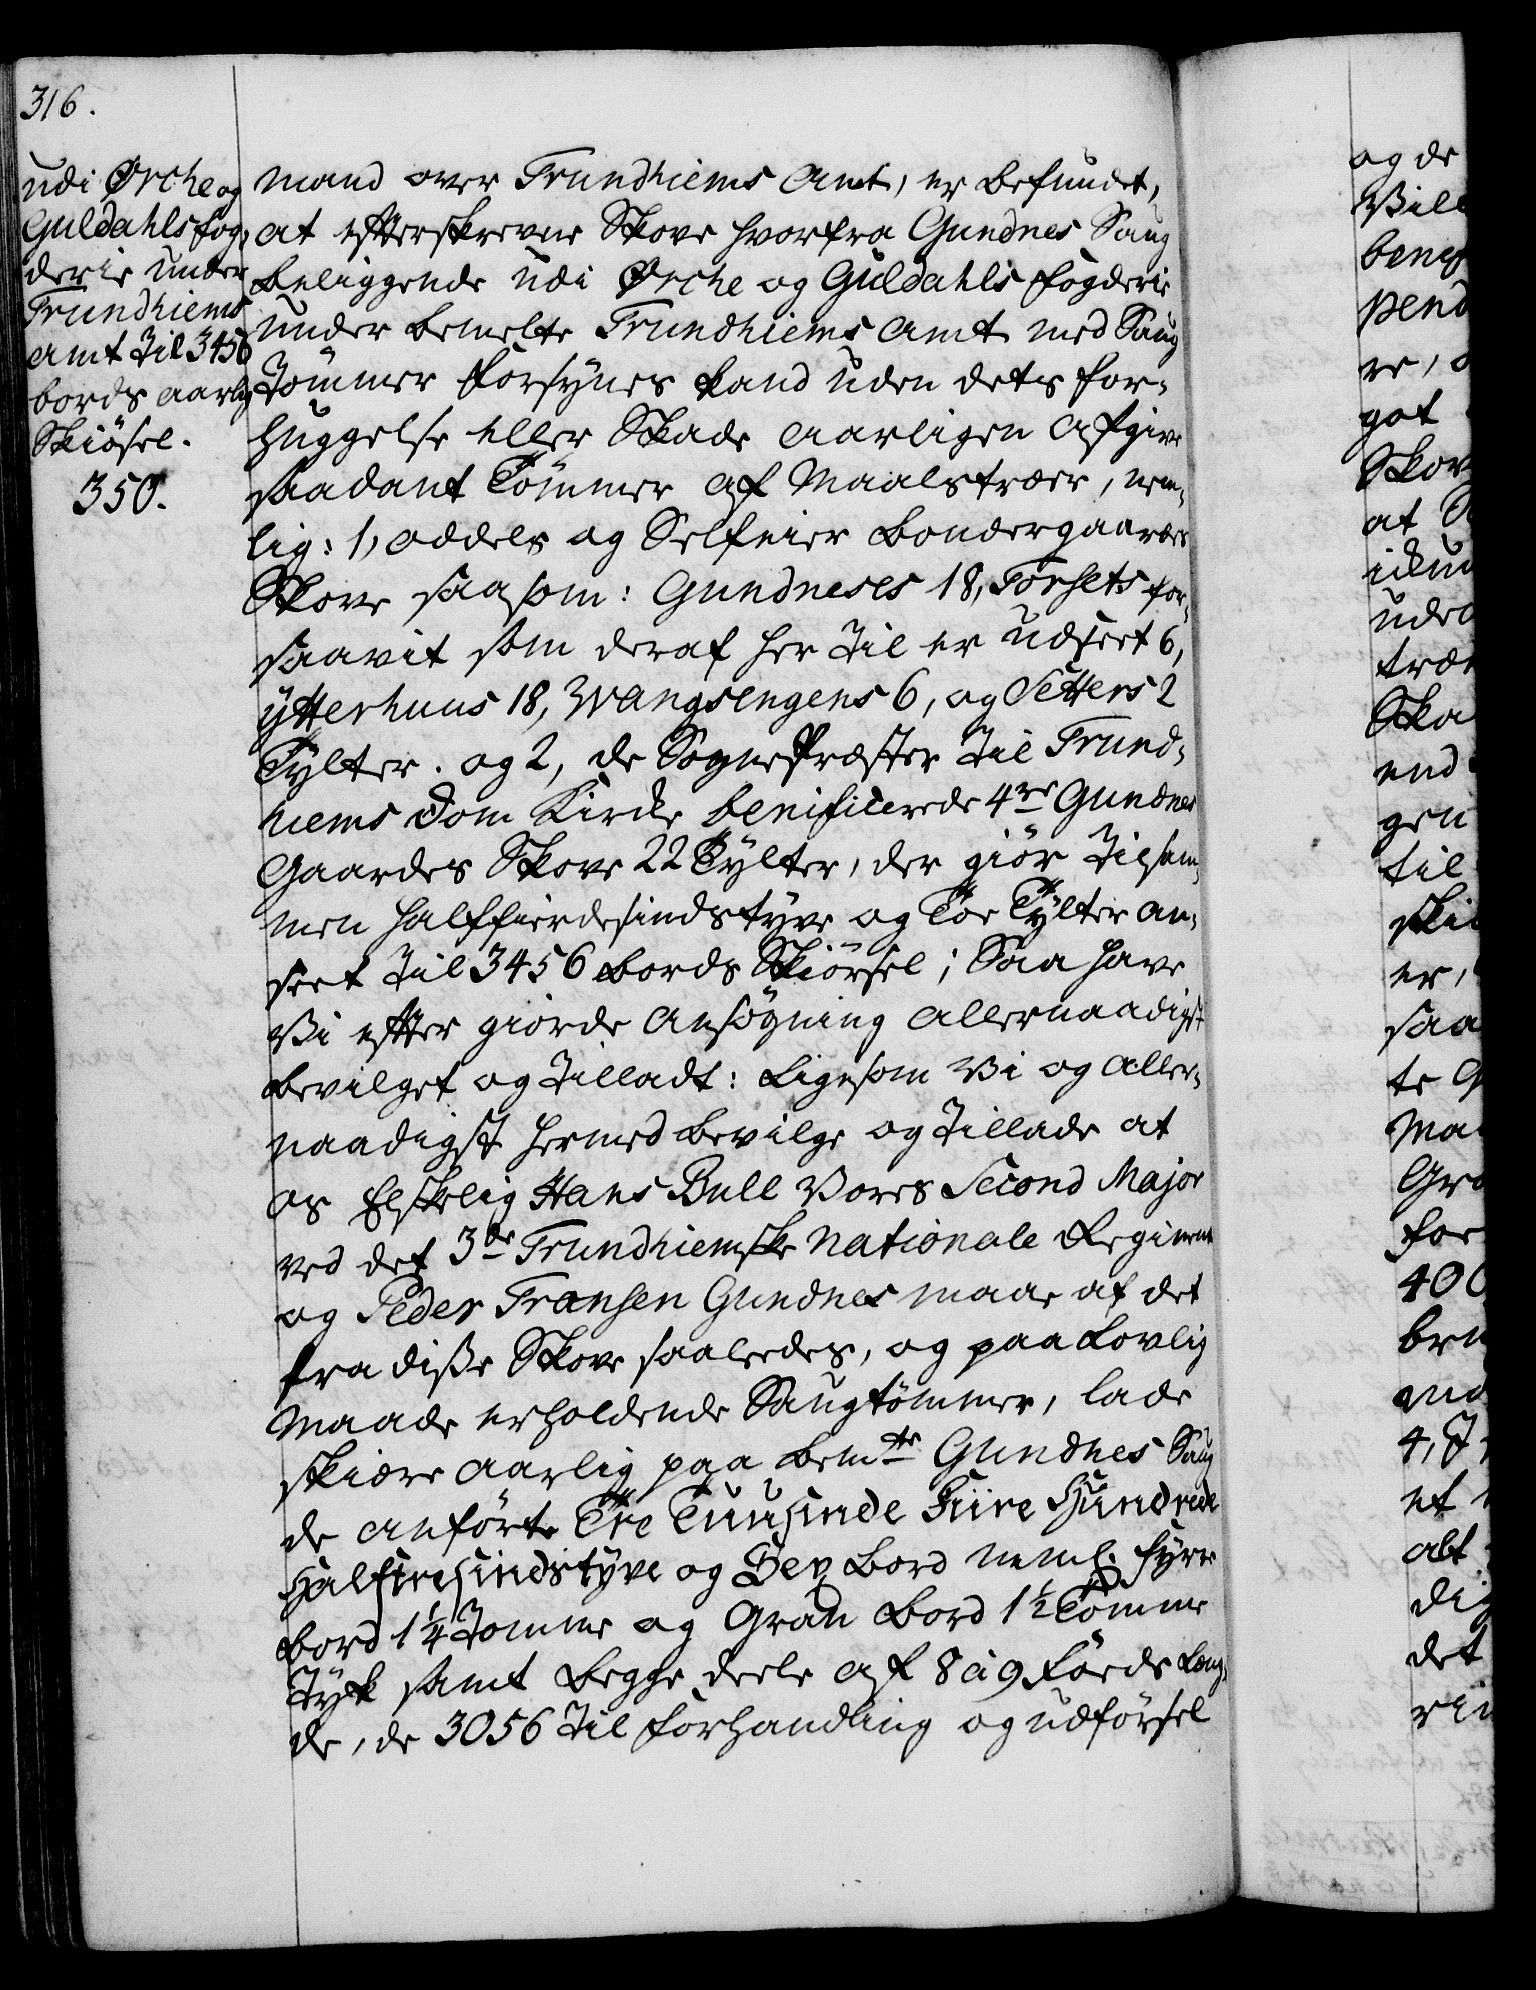 316.
udi Ørche og
Guldahls fog,
derie under
Trundhiems
Amt til 3456
bords aarlig
Skiösel.
350.
mand over Trundhiems Amt, er befundet,
at efterskrevne Skove hvorfra Gundnes Saug
beliggende udi Ørche og Guldahls fogderie
under bemelte Trundhiems Amt med Saug
Tömmer forsynes kand uden dets for-
huggelse eller Skade aarligen afgive
saadant Tömmer af Maalstræer, nem-
lig: 1, Oddels og Selfeier Bondergaardes
Skove saasom: Gundneses 18, Forsets for-
saavit som deraf her til er udseet 6,
ytterhuus 18, Wangsengens 6, og Setters 2
Tylter. og 2, de Sognepræster til Trund-
hiems Dom Kirke benificerede 4re Gundnes
Gaardes Skove 22 Tylter, der giör tilsam-
men halffierdesindstyve og Toe Tylter an-
seet til 3456 bords Skiörsel; Saa have
Vi efter giorde Ansögning allernaadigst
bevilget og tilladt: Ligesom Vi og aller-
naadigst hermed bevilge og tillade at
os Elskelig Hans Bull Vores Second Major
ved det 3de Trundhiemske Nationale Regiment
og Peder Fransen Gundnes maae af det
fra disse Skove saaledes, og paa Lovlig
Maade erholdende Saugtömmer, lade
skiære aarlig paa bemte Gundnes Saug
de anförte Tre Tuusinde Fiire Hundrede
Halftresindstyve og Sex Bord neml. fyrre
bord 1 1/4 Tomme og Gran Bord 1 1/2 Tomme
Tyk samt begge deele af 8 à 9 Föeds Læng-
de, de 3056 til forhandling og udförsel
og de
Vill
benef
pend
re, 
got
Skov
at
træ
Ska
end
gen
til
ski
er,
saa
te
Ma
Gra
for
400
bru
4,
et
alt
dig
det